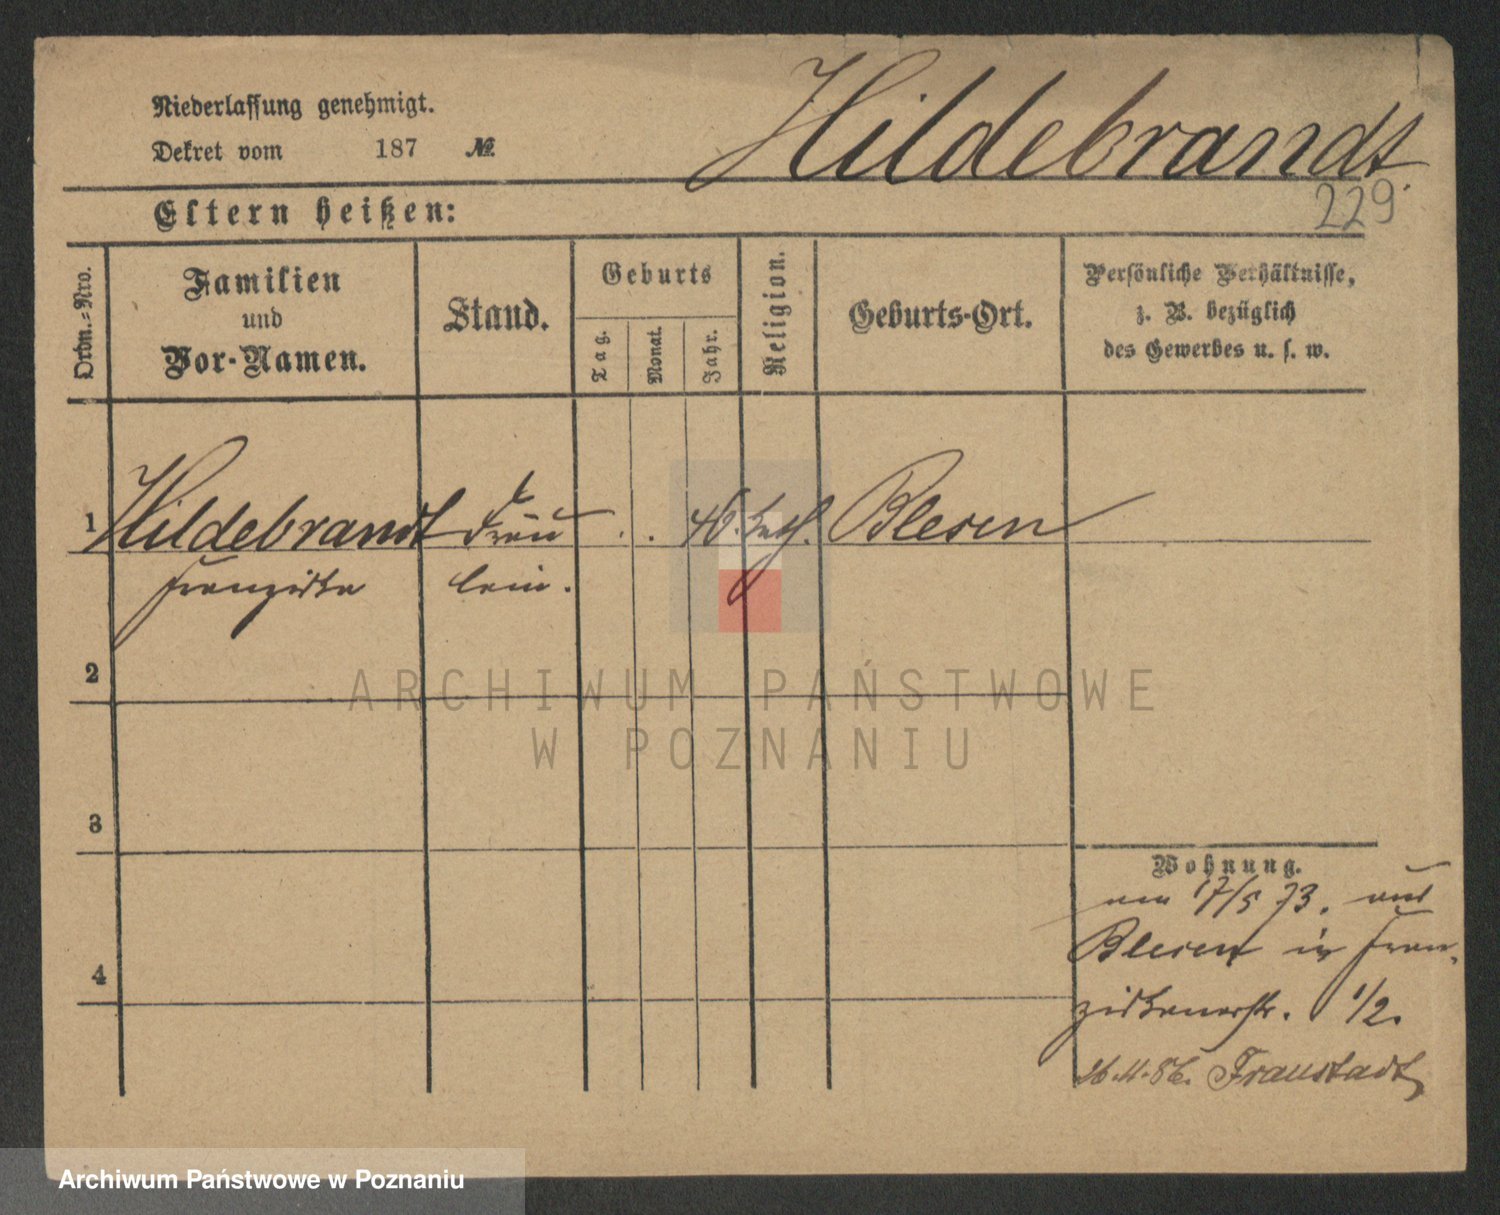 Niederlassung genehmigt.
Dekret vom 187 №
Hildebrandt
229
Eltern heißen:
Ordn.-Nro.
Familien
und
Vor-Namen.
Stand.
Geburts
Tag.
Monat.
Jahr.
Religion.
Geburts-Ort.
Persönliche Verhältnisse,
z. B. bezüglich
des Gewerbes u. s. w.
1 Hildebrandt Fräu . . 40. kath. Blesen
Franziska lein.
2
3
4
Wohnung.
am 17/5 73. aus
Blesen in Fran-
ziskanerstr. 1/2.
26.4.86. Fraustadt
ARCHIWUM PAŃSTWOWE
W POZNANIU
Archiwum Państwowe w Poznaniu